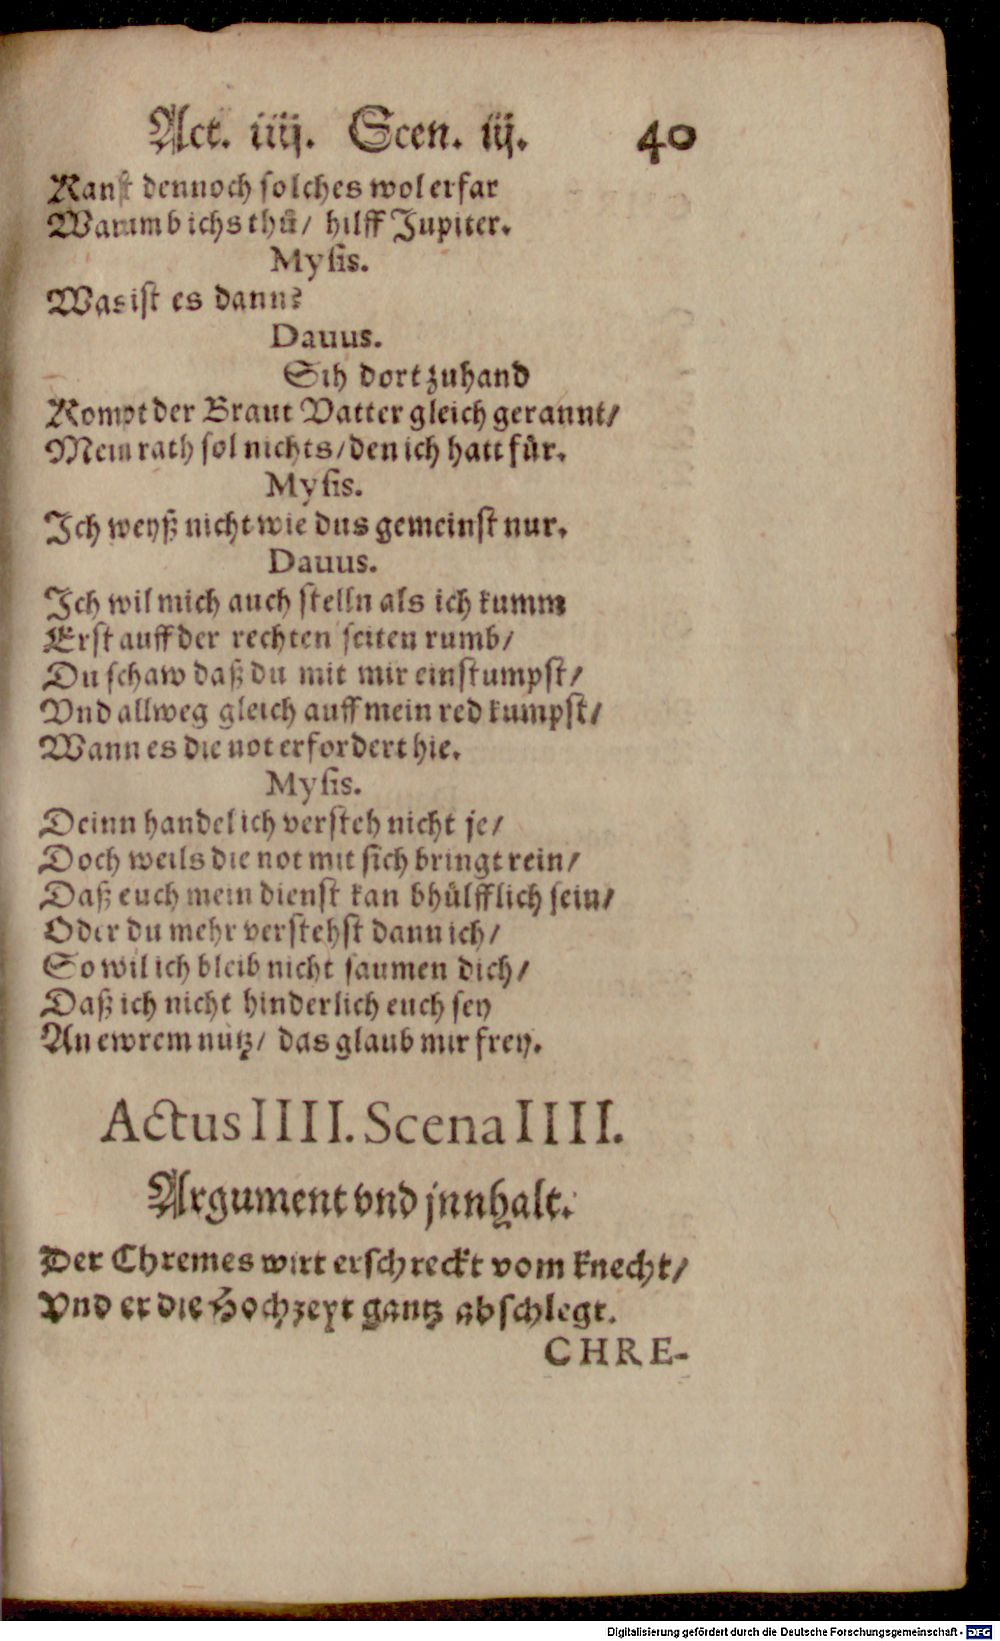 Act. iiij. Scen. iij. 40
Kanst dennoch solches wol erfar
Warumb ichs thů/ hilff Jupiter.
Mysis.
Was ist es dann?
Dauus.
Sih dort zuhand
Kompt der Braut Vatter gleich gerannt/
Mein rath sol nichts/ den ich hatt für.
Mysis.
Ich weyß nicht wie dus gemeinst nur.
Dauus.
Ich wil mich auch stelln als ich kumm
Erst auff der rechten seiten rumb/
Du schaw daß du mit mir einstumpst/
Vnd allweg gleich auff mein red kumpst/
Wann es die not erfordert hie.
Mysis.
Deinn handel ich versteh nicht je/
Doch weils die not mit sich bringt rein/
Daß euch mein dienst kan bhülfflich sein/
Oder du mehr verstehst dann ich/
So wil ich bleib nicht saumen dich/
Daß ich nicht hinderlich euch sey
An ewrem nutz/ das glaub mir frey.
Actus IIII. Scena IIII.
Argument vnd jnnhalt.
Der Chremes wirt erschreckt vom knecht/
Vnd er die Hochzeyt gantz abschlegt.
CHRE-
Digitalisierung gefördert durch die Deutsche Forschungsgemeinschaft - DFG